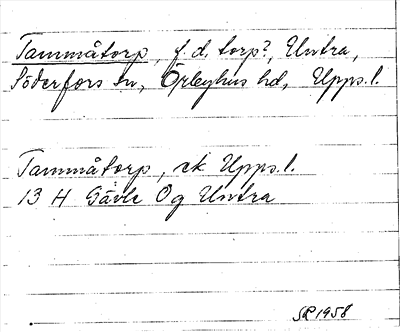 Tammåtorp, f.d. torp?, Untra,
Söderfors sn, Örbyhus hd, Upps.l.
Tammåtorp, ek Upps.l.
13 H Gävle Og Untra
SR 1958